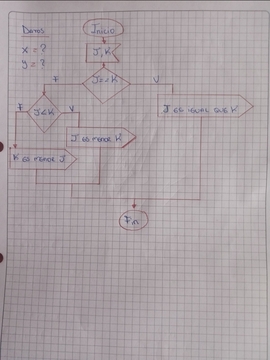 Datos
x = ?
y = ?
Inicio
J, K
J = K
F
V
J es igual que K
J < K
F
V
J es menor K
K es menor J
Fin